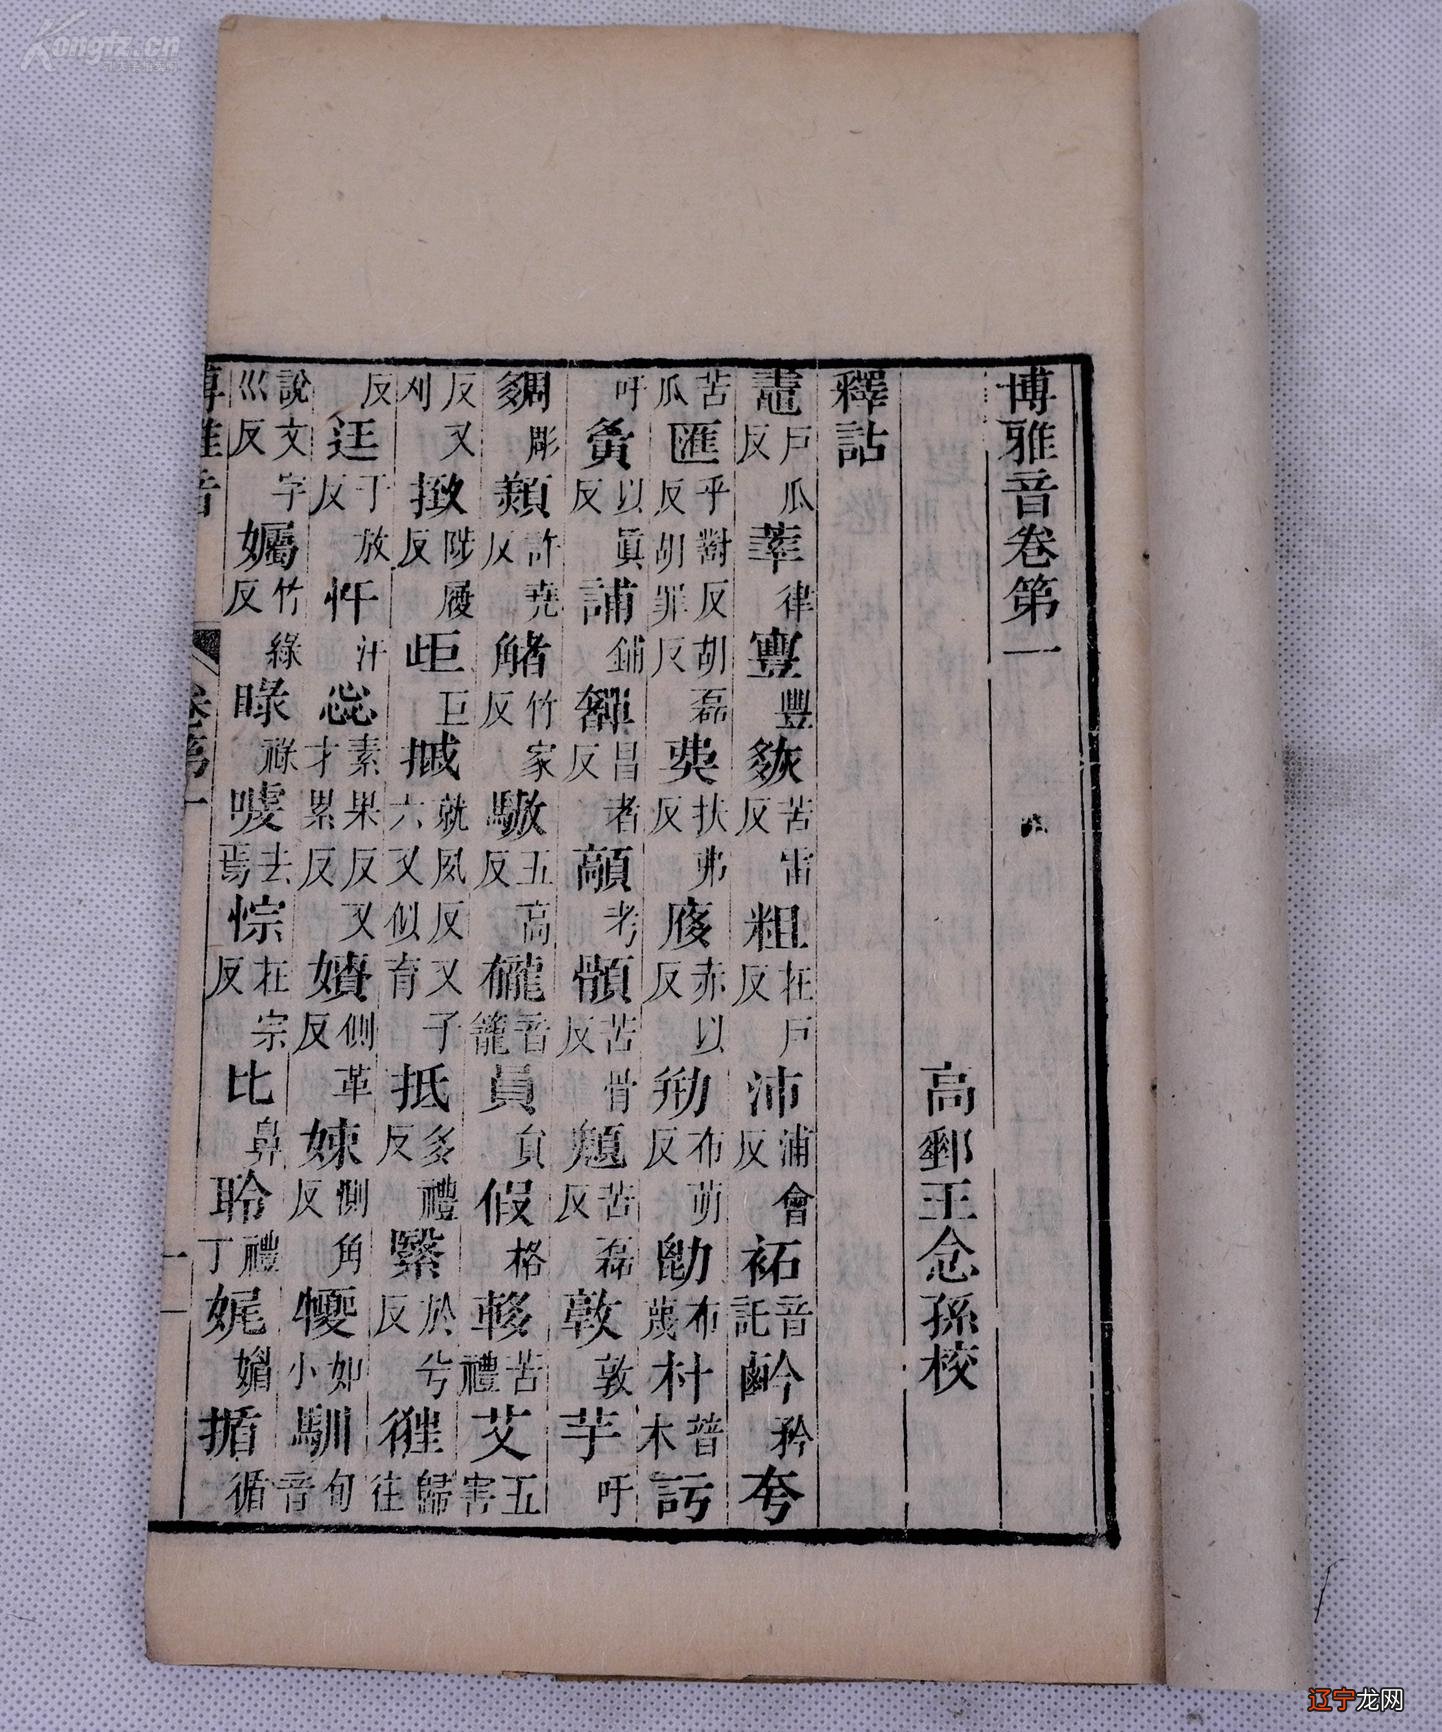 博雅音卷第一
高郵王念孫校
釋詁
鼃戶瓜反莘律寷豐㱱苦雷反粗在戶反沛浦會反袥音託㪁矜夸
苦瓜反匯乎對反胡罪反胡磊反𢍱扶弗反廖赤以反㔙布萌反勏布蔑杜普木訏
吁䝿以眞反誧鋪奲昌者反䫧考顝苦骨反顝苦磊反敦敦芋吁
周彫反顤許堯反觰竹家反驐五高反𡾋音籠員貟假格㚌苦禮艾五害
反又刈撴陟履反岠巨摵就六反又夙似育反又子抵多禮反繄於兮反徍歸往
反迋于放反忓汗惢素果反又才累反嫧側革反娕側角反㹛如小馴音旬
說文字巛反孎竹綠反睩祿嘘去焉悰在宗反比鼻聆禮丁娓媚揗循
博雅音
卷第一
一
Kongfz.cn
辽宁龙网